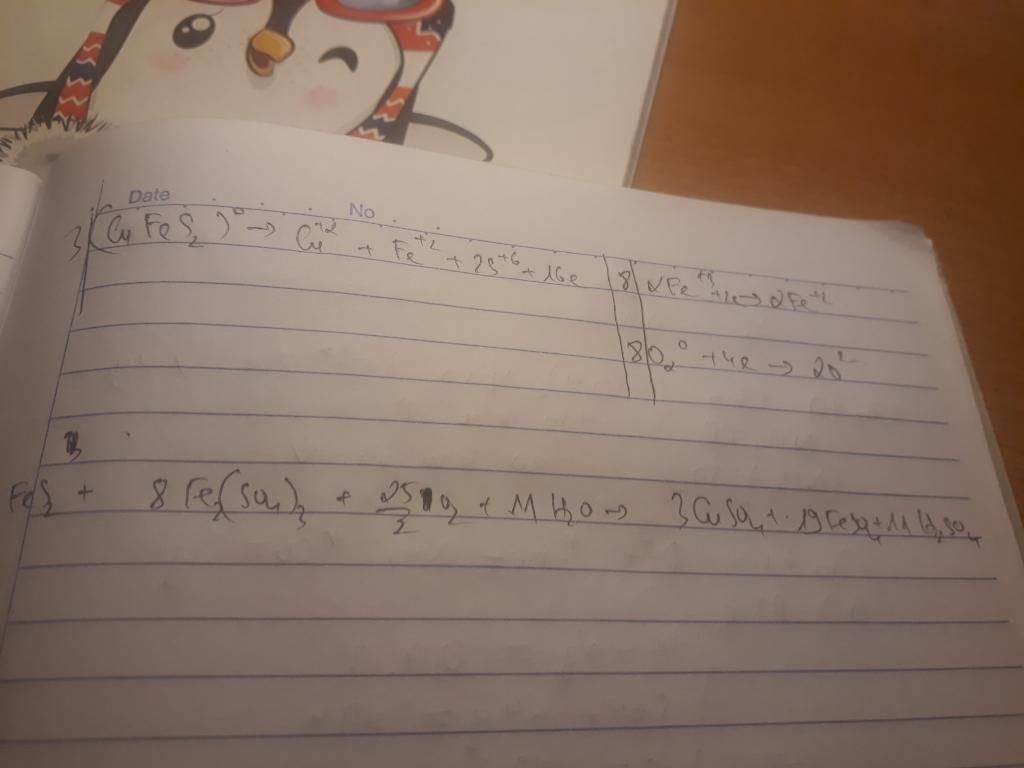 Date No
3 (CuFeS₂)⁰ → Cu⁺² + Fe⁺² + 2S⁺⁶ + 16e
8 2Fe⁺³ + 2e → 2Fe⁺²
8 O₂⁰ + 4e → 2O²⁻
3
FeS₂ + 8 Fe₂(SO₄)₃ + 25/2 O₂ + 11 H₂O → 3CuSO₄ + 19FeSO₄ + 11 H₂SO₄